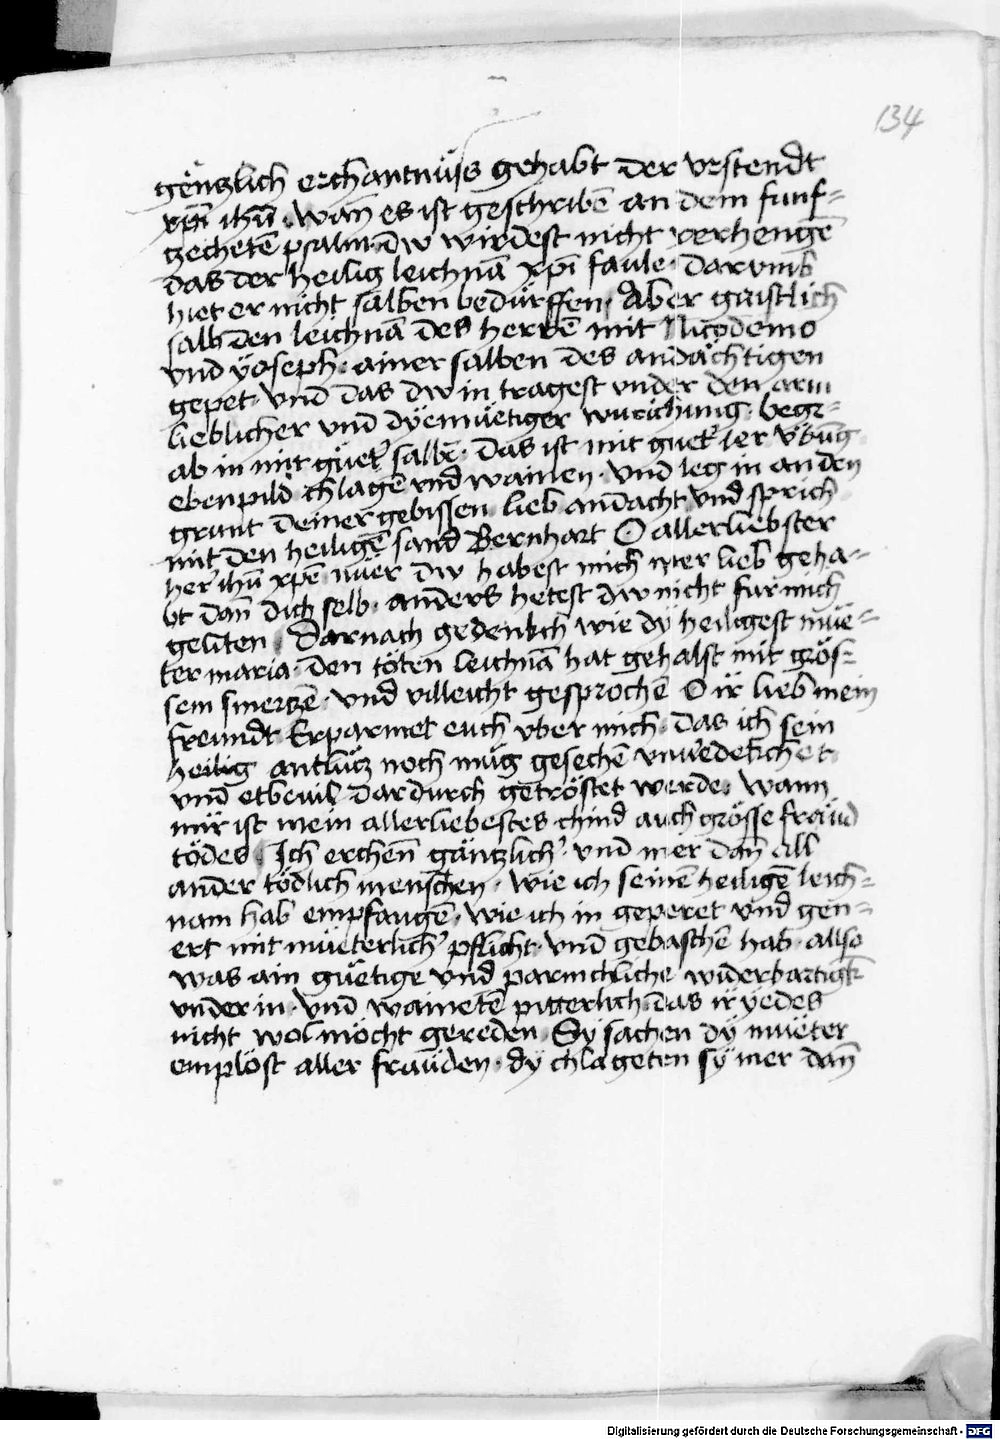 134
gëntzlich erchantnüss gehabt der vrstendt
xpı̄ ihū · wan̄ es ist geschribē an dem funf-
zechetē psalm · dw wirdest nicht verhengē
das der heilig leichnā xpı̄ faule · darvmb
hiet er nicht salben bedürffen · Aber gaistlich
salb den leichnā des herrē mit Nicodemo
vnd yoseph · ainer salben des andächtigen
gepet · vnd das dw in tragest vnder den arm
lieblicher vnd dyemüetiger würchung · begr-
ab in mit güet' salbē · das ist mit guet' ler vbūg
ebenpild chlagē vnd wainen · vnd leg in an den
grunt deiner gebissen lieb andacht vnd sprich
mit den heiligē sand Bernhart O allerliebster
her' ihū xpē nüer dw habest mich mer lieb geha-
bt dan̄ dich selb · anders hetest dw nicht fur mich
geliten · Darnach gedenkch wie dÿ heiligest müe-
ter maria · den töten leichnā hat gehalst mit grös-
sem smertzē · vnd villeicht gesprochē O ir lieb mein
freundt Erparmet euch vber mich · das ich sein
heilig antlütz noch müg gesechē vnuedekchet
vnd etbeuil dardurch getröstet werde · wann
mir ist mein allerliebestes chind auch grösse fraüd
tödes · Ich erchen̄ gäntzlich' vnd mer dan̄ all
ander tödlich menschen · wie ich seinē heiligē leich-
nam hab empfangē · wie ich in geperet vnd gen-
ert mit müeterlich' pflicht · vnd gebaschē hab · allso
was ain güetige vnd parmchliche widerbartigk
vnder in · vnd wainetē pitterlich das ir yedes
nicht wol möcht gereden Sÿ sachen dÿ müeter
emplöst aller fraüden · dÿ chlageten sÿ mer dan̄
Digitalisierung gefördert durch die Deutsche Forschungsgemeinschaft - DFG